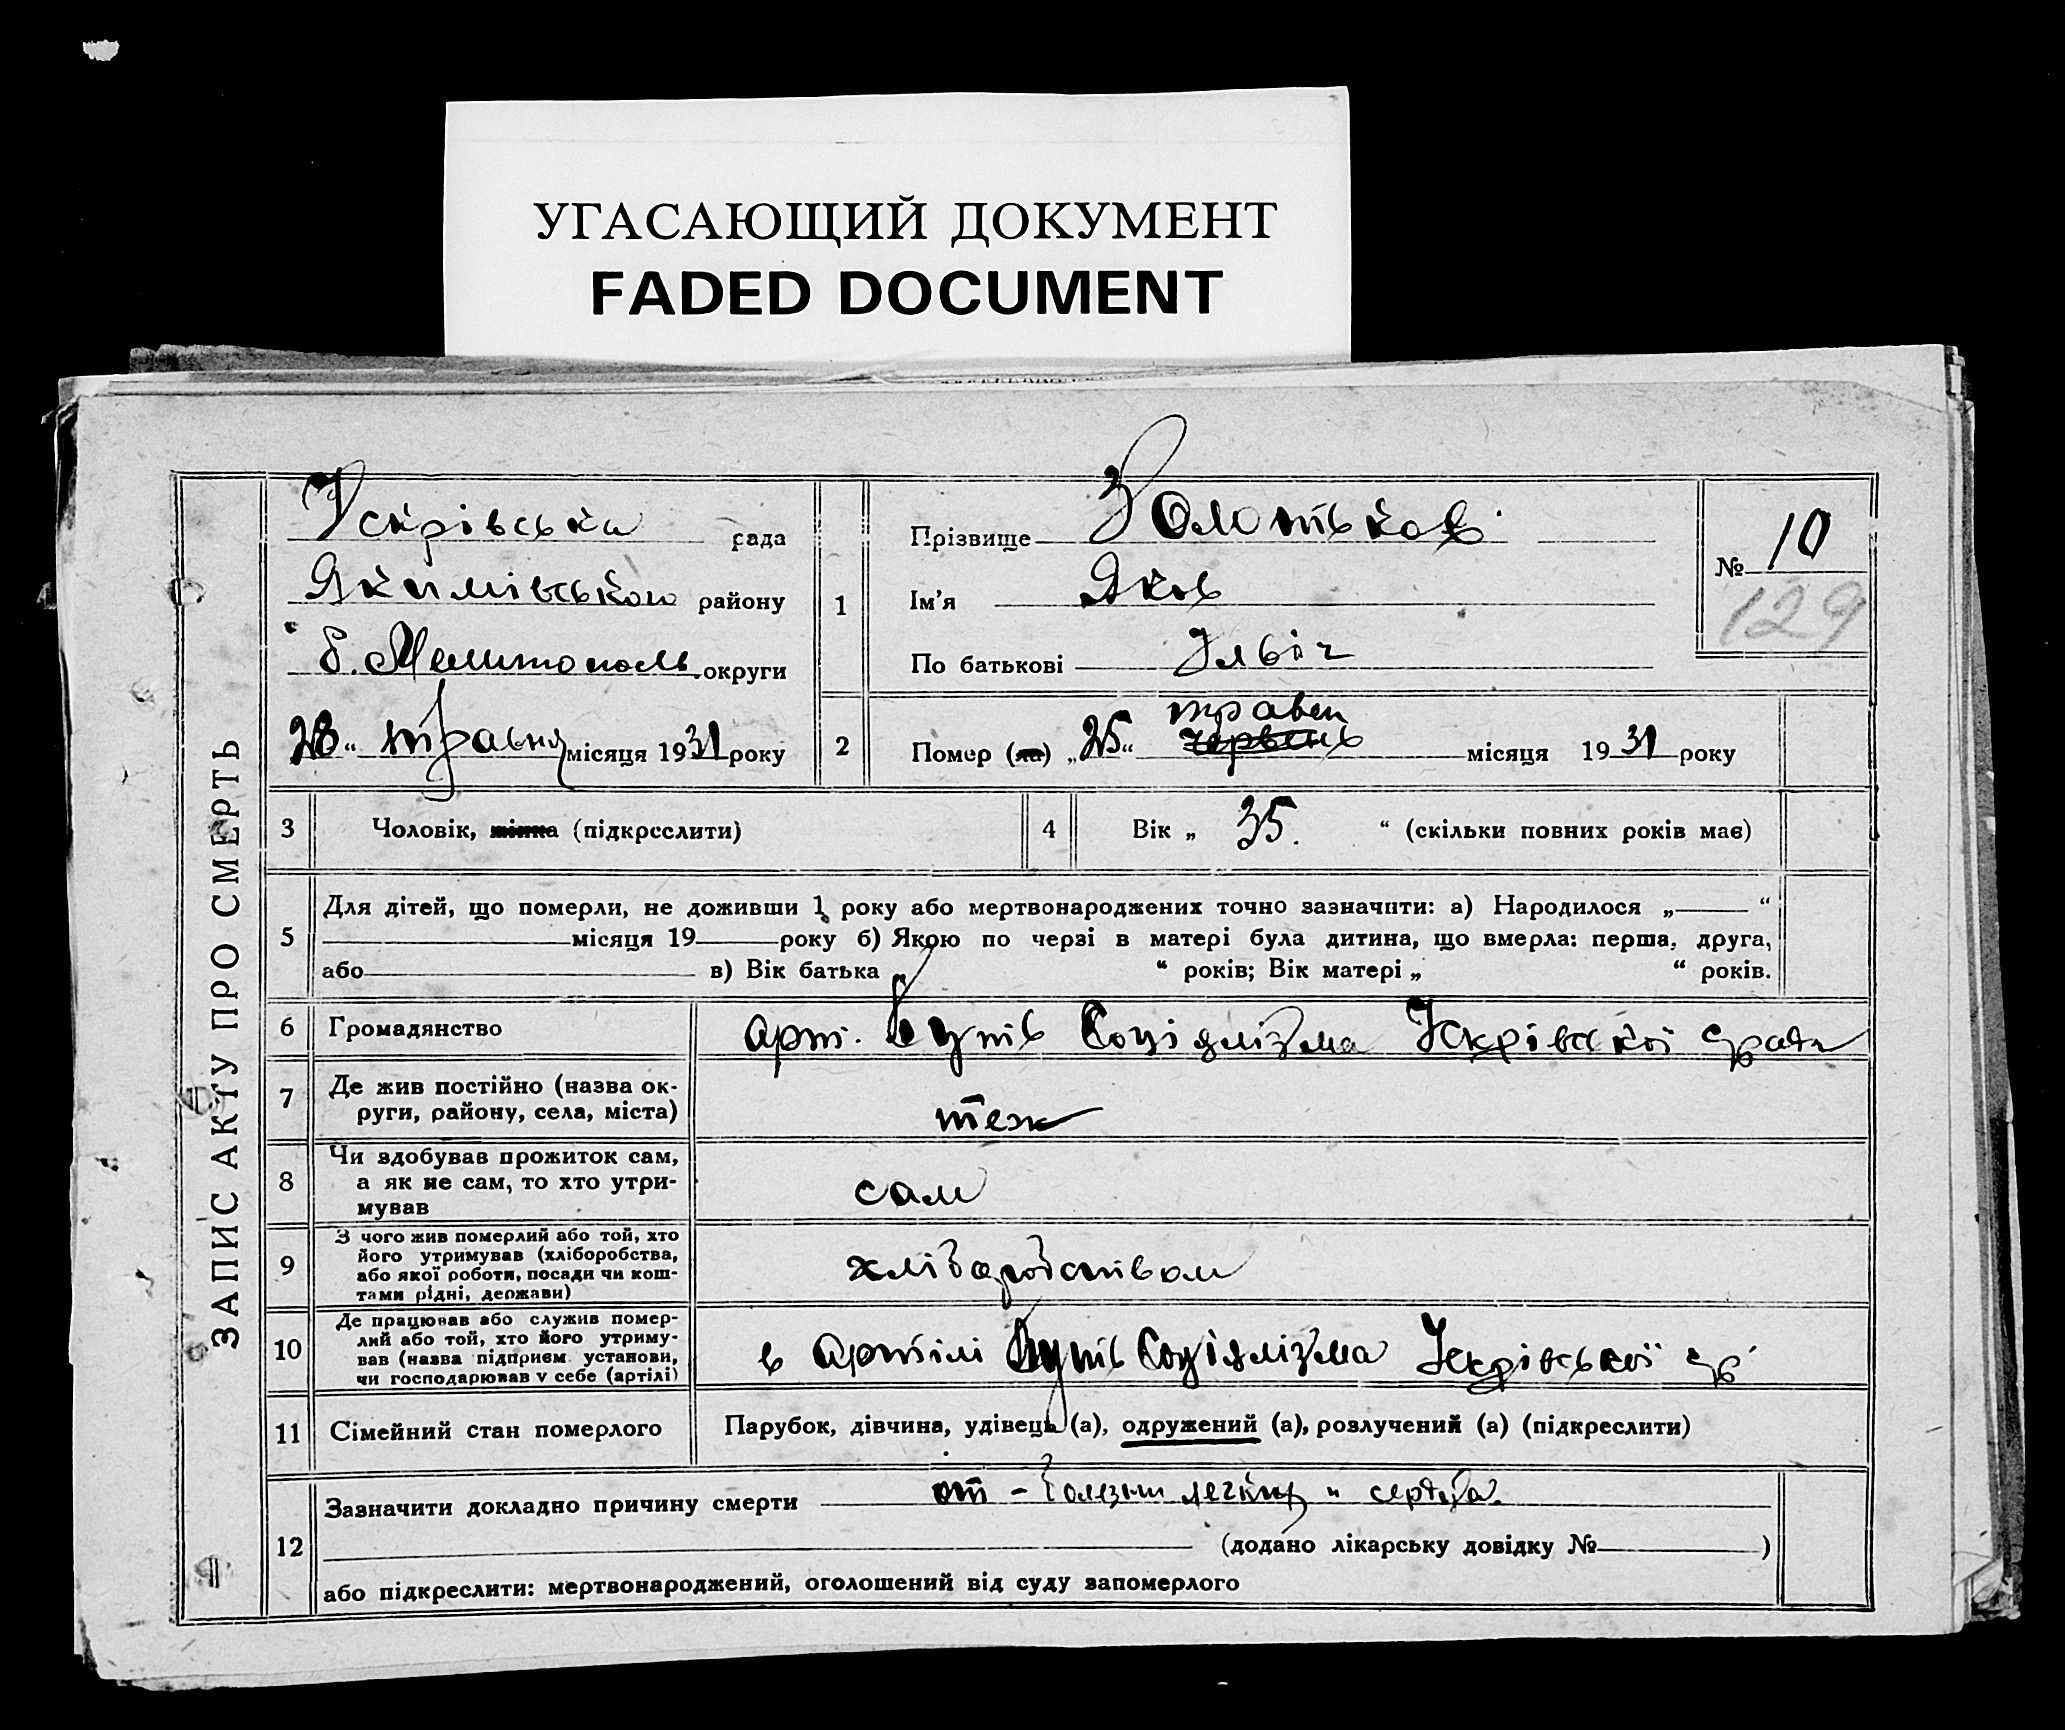 УГАСАЮЩИЙ ДОКУМЕНТ
FADED DOCUMENT
ЗАПИС АКТУ ПРО СМЕРТЬ
Іскрівська рада
Якимівського району
б. Мелитополь округи
28 “ травня місяця 1931 року
1
Прізвище Золотьков
Ім'я Яков
По батькові Ільіч
№ 10
129
2
Помер (ла) „ 25 “ травен червень місяця 1931 року
3 Чоловік, жінка (підкреслити)
4 Вік „ 35. “ (скільки повних років має)
5
Для дітей, що померли, не доживши 1 року або мертвонароджених точно зазначити: а) Народилося „ “
місяця 19 року б) Якою по черзі в матері була дитина, що вмерла: перша, друга,
або в) Вік батька “ років; Вік матері „ “ років.
6 Громадянство арт. Путь Соціялізма Іскрівської с/ради
7 Де жив постійно (назва ок-
руги, району, села, міста) теж
8 Чи здобував прожиток сам,
а як не сам, то хто утри-
мував сам
9 З чого жив померлий або той, хто
його утримував (хліборобства,
або якої роботи, посади чи кош-
тами рідні, держави) хліборобством
10 Де працював або служив помер-
лий або той, хто його утриму-
вав (назва підприєм. установи,
чи господарював у себе (артілі) в артілі Путь Соціялізма Іскрівської с/р
11 Сімейний стан померлого Парубок, дівчина, удівець (а), одружений (а), розлучений (а) (підкреслити)
12
Зазначити докладно причину смерти от - болезни легких и сердца.
(додано лікарську довідку № )
або підкреслити: мертвонароджений, оголошений від суду запомерлого